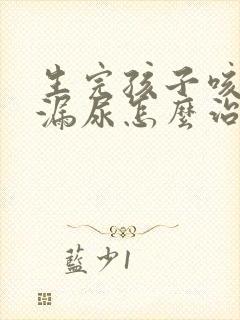 生完孩子咳
漏尿怎麼治
藍少1